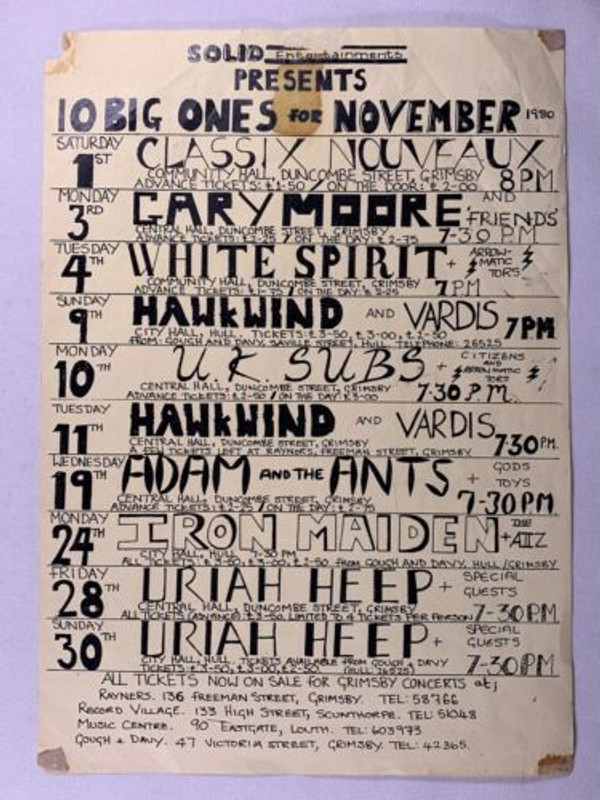 SOLID Entertainments
PRESENTS
10 BIG ONES FOR NOVEMBER 1980
SATURDAY 1ST CLASSIX NOUVEAUX
COMMUNITY HALL, DUNCOMBE STREET, GRIMSBY
ADVANCE TICKETS: £1-50 / ON THE DOOR: £2-00 8PM
MONDAY 3RD GARY MOORE AND FRIENDS'
CENTRAL HALL, DUNCOMBE STREET, GRIMSBY
ADVANCE TICKETS: £2-25 / ON THE DAY: £2-75 7-30 P.M
TUESDAY 4TH WHITE SPIRIT + ARROW-MATIC TORS
COMMUNITY HALL, DUNCOMBE STREET, GRIMSBY
ADVANCE TICKETS: £1-75 / ON THE DAY: £2-25 7PM
SUNDAY 9TH HAWKWIND AND VARDIS 7PM
CITY HALL, HULL. TICKETS: £3-50, £3-00, £2-50
FROM: GOUGH AND DAVY, SAVILE STREET, HULL. TELEPHONE: 26525
MONDAY 10TH U.K SUBS + CITIZENS AND TORS
CENTRAL HALL, DUNCOMBE STREET, GRIMSBY
ADVANCE TICKETS: £2-50 / ON THE DAY: £3-00 7.30 P.M.
TUESDAY 11TH HAWKWIND AND VARDIS 7.30 PM.
CENTRAL HALL, DUNCOMBE STREET, GRIMSBY
A FEW TICKETS LEFT AT RAYNERS, FREEMAN STREET, GRIMSBY
WEDNESDAY 19TH ADAM AND THE ANTS + GODS TOYS
CENTRAL HALL, DUNCOMBE STREET, GRIMSBY
ADVANCE TICKETS: £2-25 / ON THE DAY: £2-75 7-30PM
MONDAY 24TH IRON MAIDEN + THE
CITY HALL, HULL 7-30 PM
ALL TICKETS: £3-50, £3-00, £2-50 FROM GOUGH AND DAVY, HULL/GRIMSBY
FRIDAY 28TH URIAH HEEP + SPECIAL GUESTS
CENTRAL HALL, DUNCOMBE STREET, GRIMSBY
ALL TICKETS (ADVANCE) £3-50. LIMITED TO 4 TICKETS PER PERSON 7-30P.M.
SUNDAY 30TH URIAH HEEP + SPECIAL GUESTS
CITY HALL, HULL. TICKETS AVAILABLE FROM GOUGH & DAVY
TICKETS: £3-50, £3-00, £2-50 (HULL 26525) 7-30PM
ALL TICKETS NOW ON SALE FOR GRIMSBY CONCERTS at;
RAYNERS. 136 FREEMAN STREET, GRIMSBY. TEL: 58766
RECORD VILLAGE. 133 HIGH STREET, SCUNTHORPE. TEL: 51048
MUSIC CENTRE. 90 EASTGATE, LOUTH. TEL: 603973
GOUGH & DAVY. 47 VICTORIA STREET, GRIMSBY. TEL: 42365.